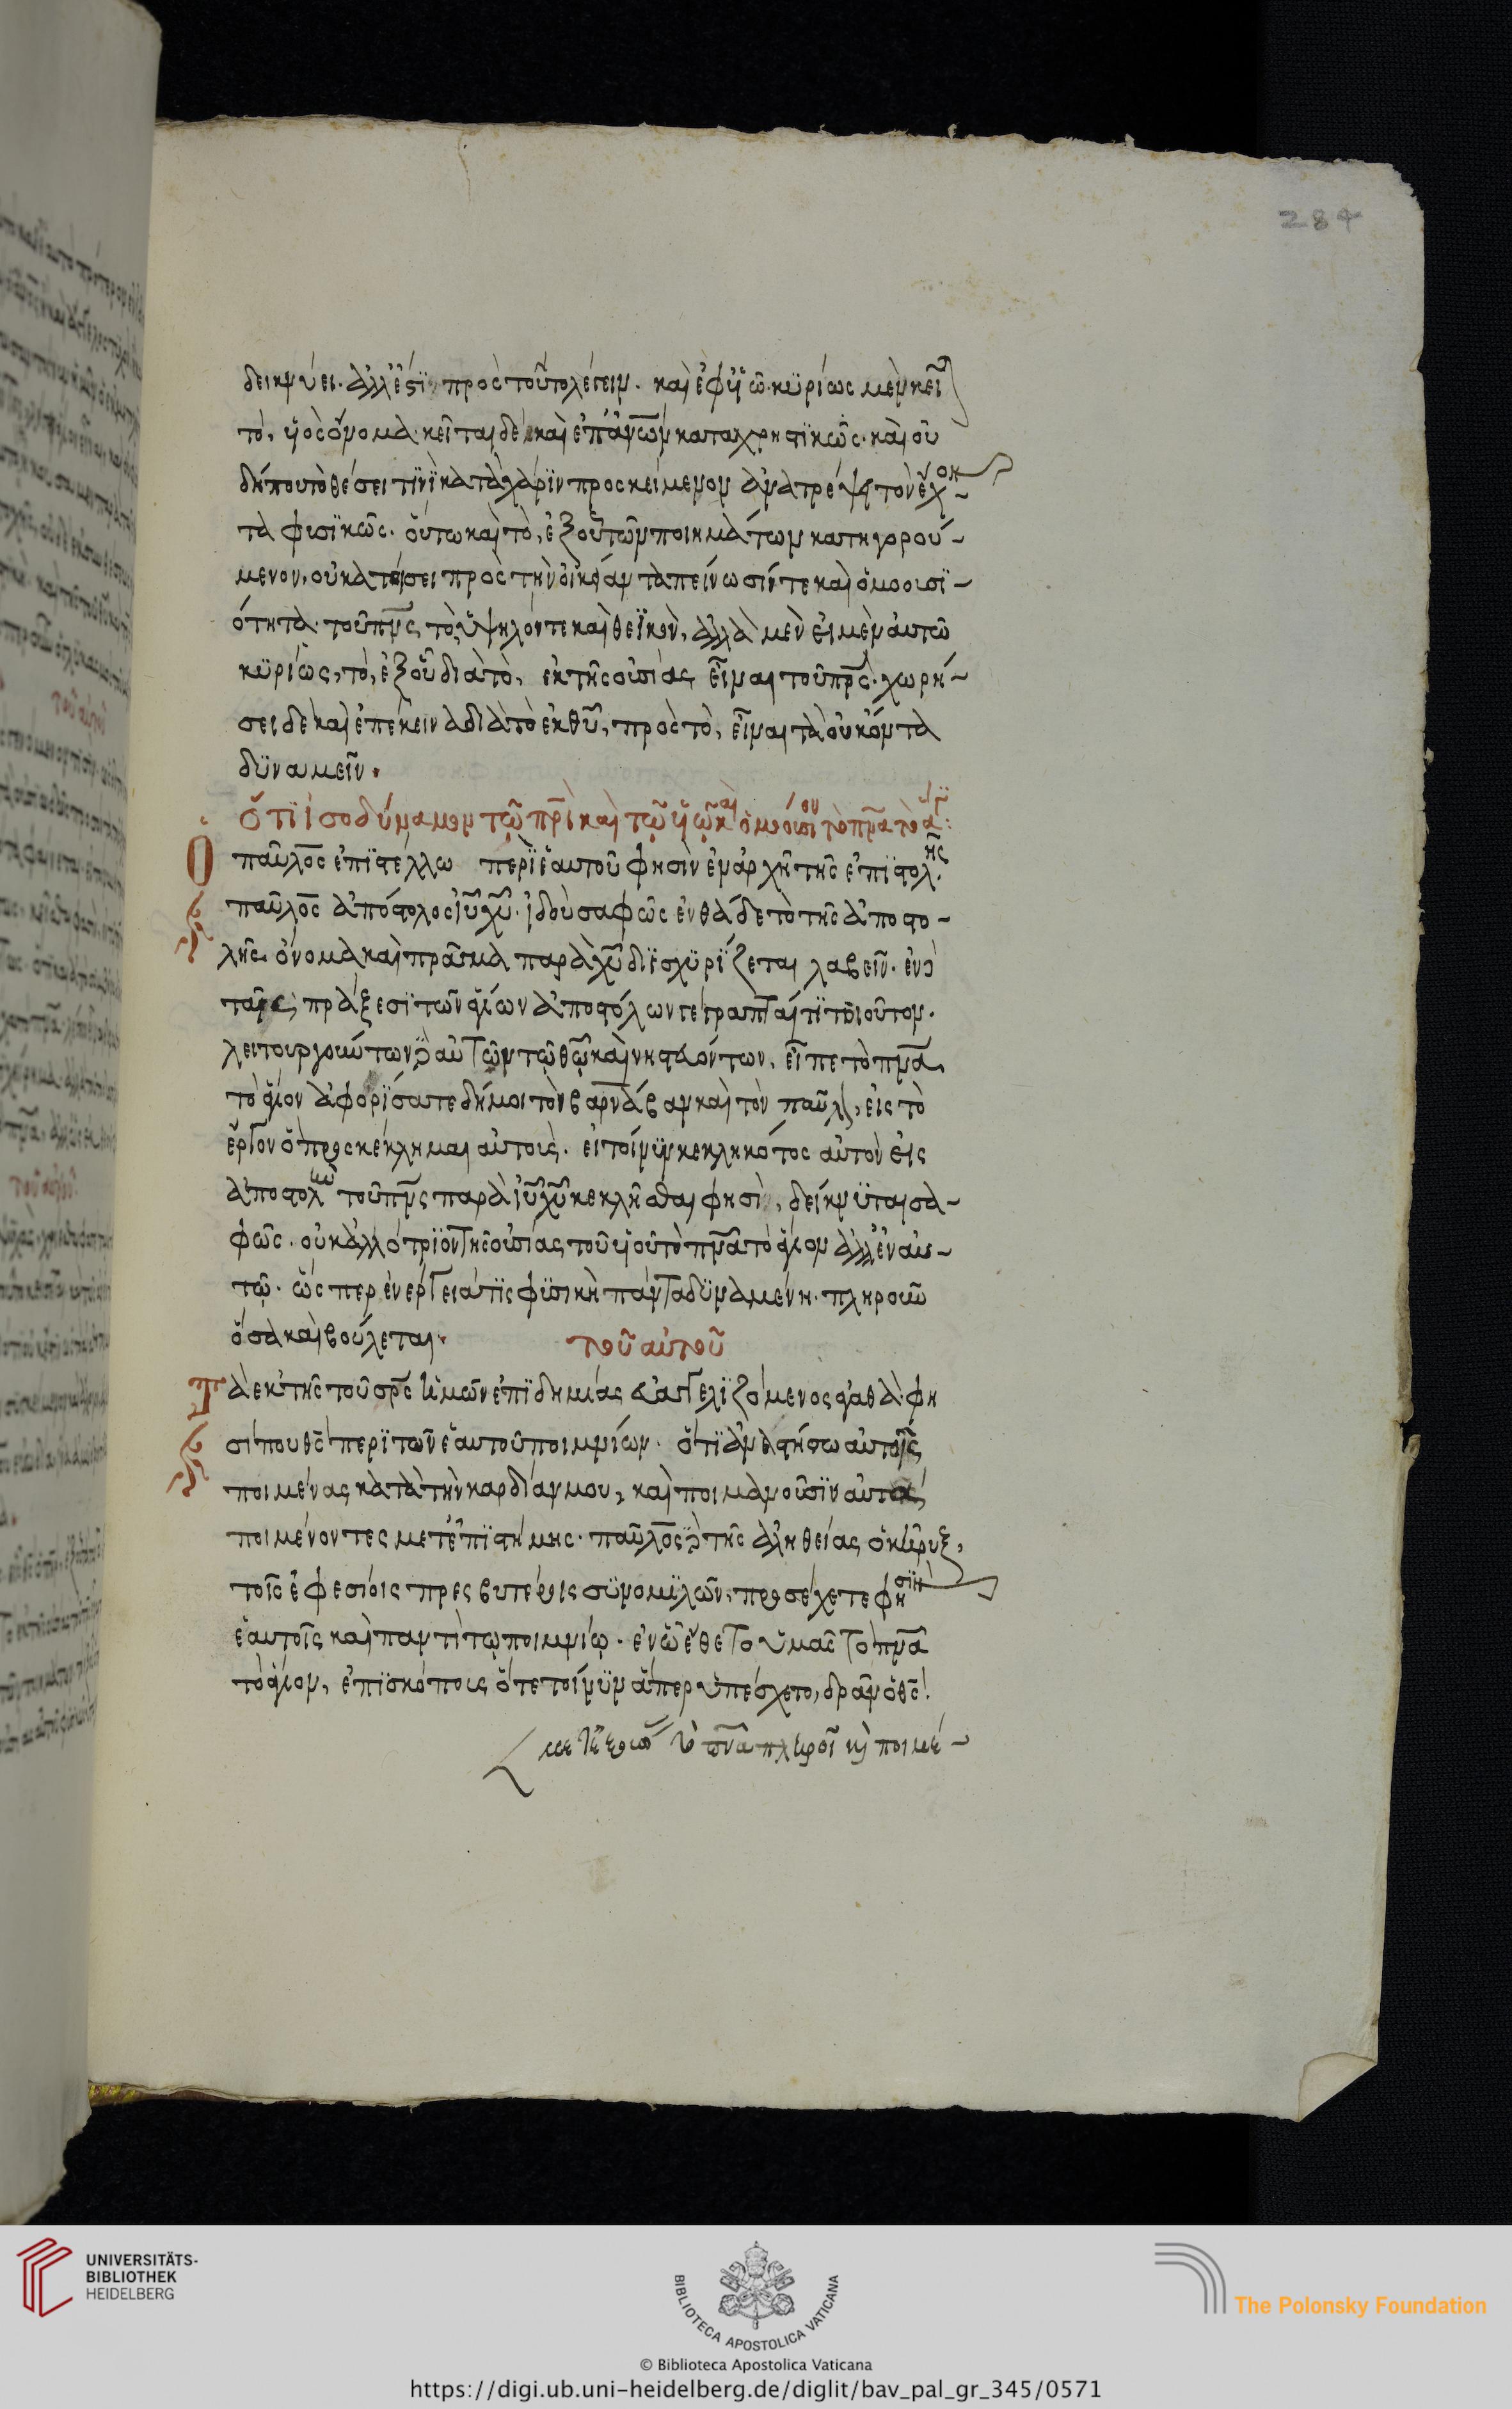 284
δεικνύει. ἀλλ' ἔστι πρὸς τοῦτο λέγειν. καὶ ἐφ' υἱῶ κυρίως μὲν κεῖ
τὸ, υἱὸς ὄνομα. κεῖται δὲ καὶ ἐπ' ἄνων καταχρηστϊκῶς. καὶ οὐ
δήπου τὸ θέσει τϊνϊ κατὰ χάρϊν προσκείμενον ἀνατρέψει τὸν ἔχον
τα φυσϊκῶς. οὕτω καὶ τὸ, ἐξ οὗ τῶν ποιημάτων κατηγορού-
μενον, οὐ κατοίσει πρὸς τὴν οἰκείαν ταπείνωσίν τε καὶ ὁμοουσϊ-
ότητα τοῦ πνς τὸ ὑψηλόν τε καὶ θεϊκὸν, ἀλλὰ μὲν εἰ μὲν αὐτῶ
κυρίως, τὸ, ἐξ οὗ διὰ τὸ, ἐκ τῆς οὐσίας εἶναι τοῦ πρς. χωρή-
σει δὲ καὶ ἐπέκεινα διὰ τὸ ἐκ θυ, πρὸς τὸ, εἶναι τὰ οὐκ ὄντα
δϋναμεῖν.
ὅτϊ ἰσοδύναμον τῶ πρὶ καὶ τῶ υἱῶ καὶ ὁμοούσιον τὸ πνα τὸ ἅγι:
Ὁ παῦλος ἐπϊστέλλω περὶ ἑαυτοῦ φησὶν ἐν ἀρχῆ τῆς ἐπϊστολῆς.
παῦλος ἀπόστολος ιυ χυ. ἰδοὺ σαφῶς ἐνθάδε τὸ τῆς ἀποστο-
λῆς ὄνομα καὶ πρᾶγμα παρὰ χυ διϊσχϋρϊζεται λαβεῖν. ἐν δὲ
ταῖς πράξεσϊ τῶν ἁγίων ἀποστόλων γέγραπται τϊ τοιοῦτον.
λειτουργούντων δὲ αὐτῶν τῶ θῶ καὶ νηστευόντων, εἶπε τὸ πνα
τὸ ἅγιον ἀφορϊσατε δή μοι τὸν βαρνάβαν καὶ τὸν παῦλον, εἰς τὸ
ἔργον ὃ προσκέκλημαι αὐτούς. εἰ τοίνϋν κεκληκότος αὐτὸν εἰς
ἀποστολὴν τοῦ πνς παρὰ ιυ χυ κεκλῆσθαι φησὶ, δείκνϋται σα-
φῶς. οὐκ ἀλλότρϊον τῆς οὐσίας τοῦ υἱοῦ τὸ πνα τὸ ἅγιον ἀλλ' ἐν αυ-
τῶ. ὥσπερ ἐνέργεια τϊς φϋσικὴ πάντα δϋναμένη. πληροῦν
ὅσα καὶ βούλεται.
τοῦ αὐτοῦ
Τὰ ἐκ τῆς τοῦ σρς ἡμῶν ἐπϊδημίας εὐαγγελϊζόμενος ἀγαθὰ. φη
σί που θς περϊ τῶν ἑαυτοῦ ποιμνίων. ὅτϊ ἀναστήσω αὐτοῖς
ποιμένας κατὰ τὴν καρδίαν μου, καὶ ποιμανοῦσϊν αὐτοὺς
ποιμένοντες μετ' ἐπϊστήμης. παῦλος δὲ τῆς ἀληθείας ὁ κῆρυξ,
τοῖς ἐφεσίοις πρεσβυτέροις σϋνομϊλῶν, προσέχετε φησϊν
ἑαυτοῖς καὶ παντὶ τῶ ποιμνίω. ἐν ὧ ἔθετο ὑμᾶς τὸ πνα
τὸ ἅγιον, ἐπϊσκόπους ὅτε τοίνϋν ἅπερ ὑπέσχετο, δρᾶν ὁ θς.
τὸ πνα πληροῖ καὶ ποιμέ-
UNIVERSITÄTS-
BIBLIOTHEK
HEIDELBERG
BIBLIOTECA APOSTOLICA VATICANA
The Polonsky Foundation
© Biblioteca Apostolica Vaticana
https://digi.ub.uni-heidelberg.de/diglit/bav_pal_gr_345/0571